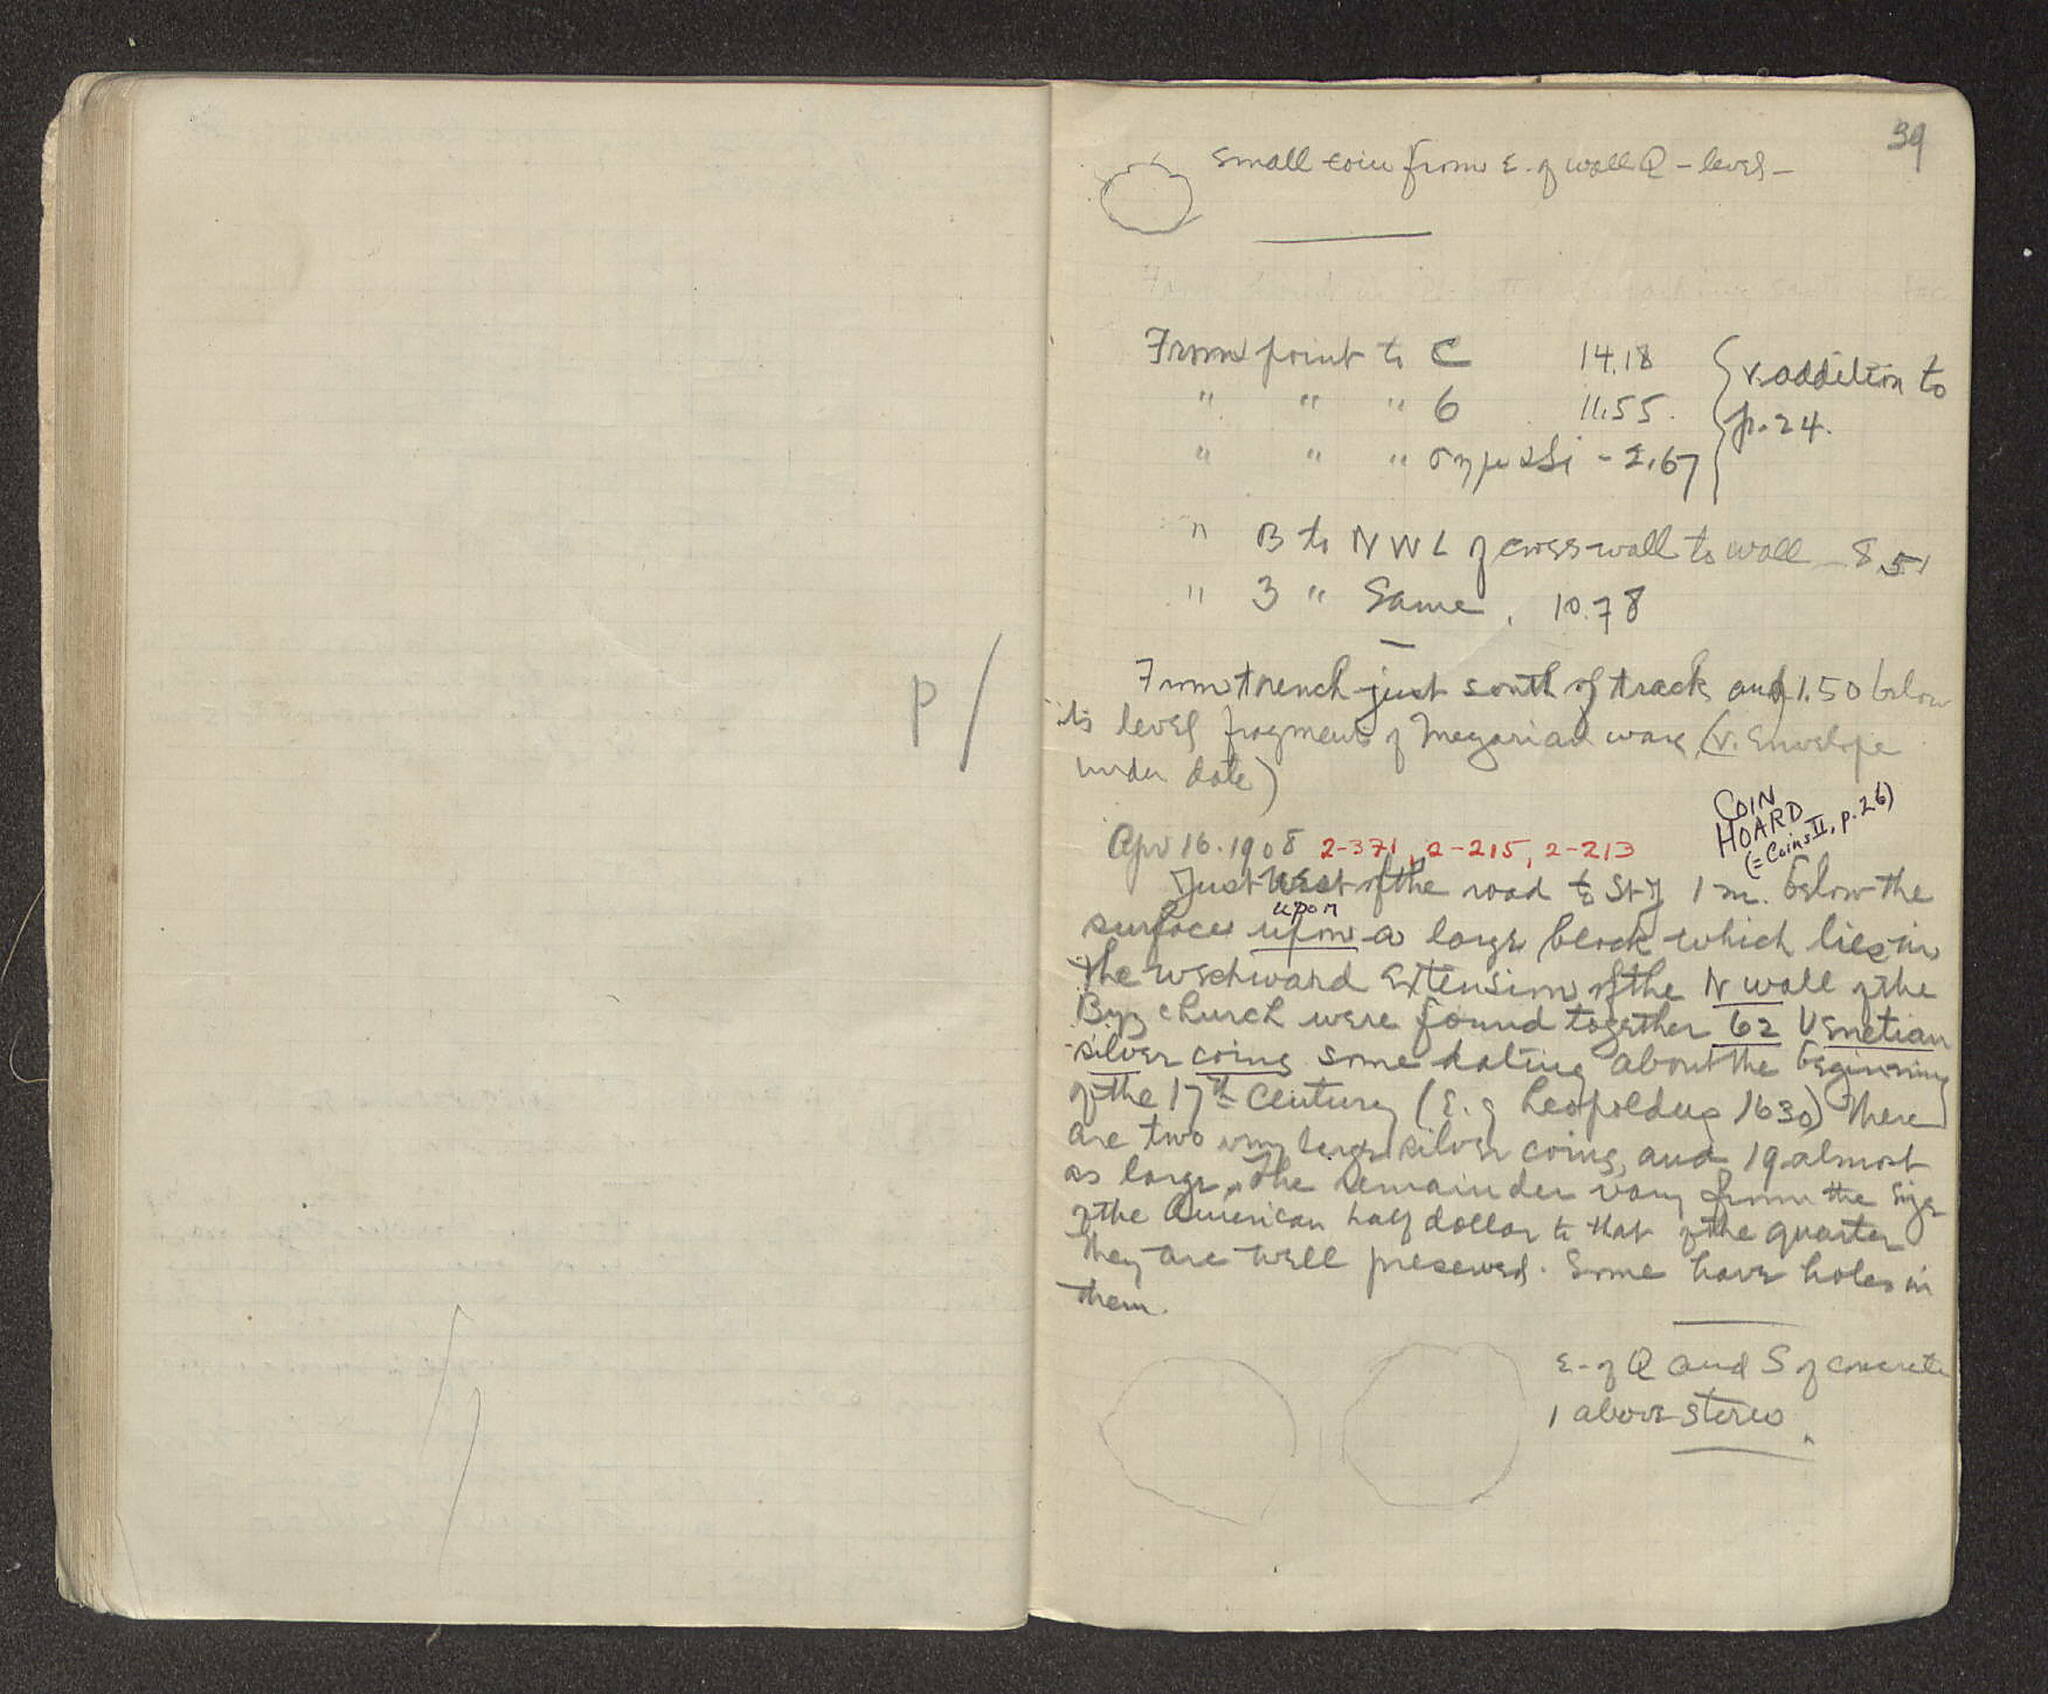 39
small coin from E. of wall Q - level -
From point to C 14.18
" " " 6 11.55.
" " " σημάδι - 2.67
v. addition to
p. 24.
" B to NW L of cross wall to wall - 8.51
" 3 " Same . 10.78
p /
From trench just south of track and 1.50 below
its level fragments of Megarian ware (v. Envelope
under date)
COIN
HOARD
(= Coins II, p. 26)
Apr 16. 1908 2-371, 2-215, 2-213
Just West of the road to St J 1 m. below the
upon
surface upon a large block which lies in
the westward extension of the N wall of the
Byz church were found together 62 Venetian
silver coins some dating about the beginning
of the 17th Century (E.g Leopoldus 1630) There
are two very large silver coins, and 19 almost
as large. The remainder vary from the size
of the American half dollar to that of the quarter
They are well preserved. Some have holes in
them.
E. of Q and S of concrete
1 above stereo.